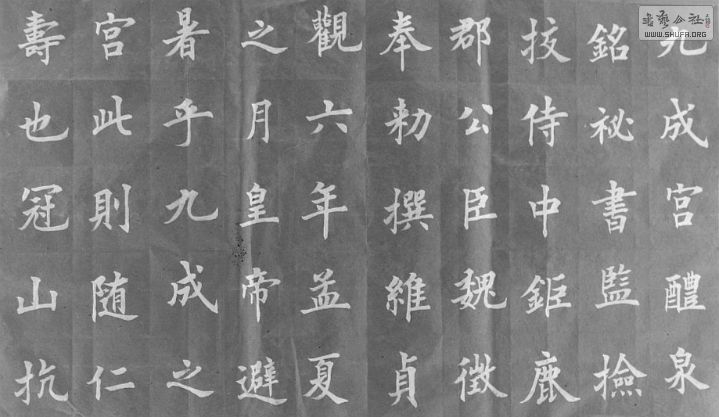 九成宮醴泉
銘祕書監撿
挍侍中鉅鹿
郡公臣魏徵
奉勑撰維貞
觀六年孟夏
之月皇帝避
暑乎九成之
宮此則随仁
壽也冠山抗
書藝公社
WWW.SHUFA.ORG